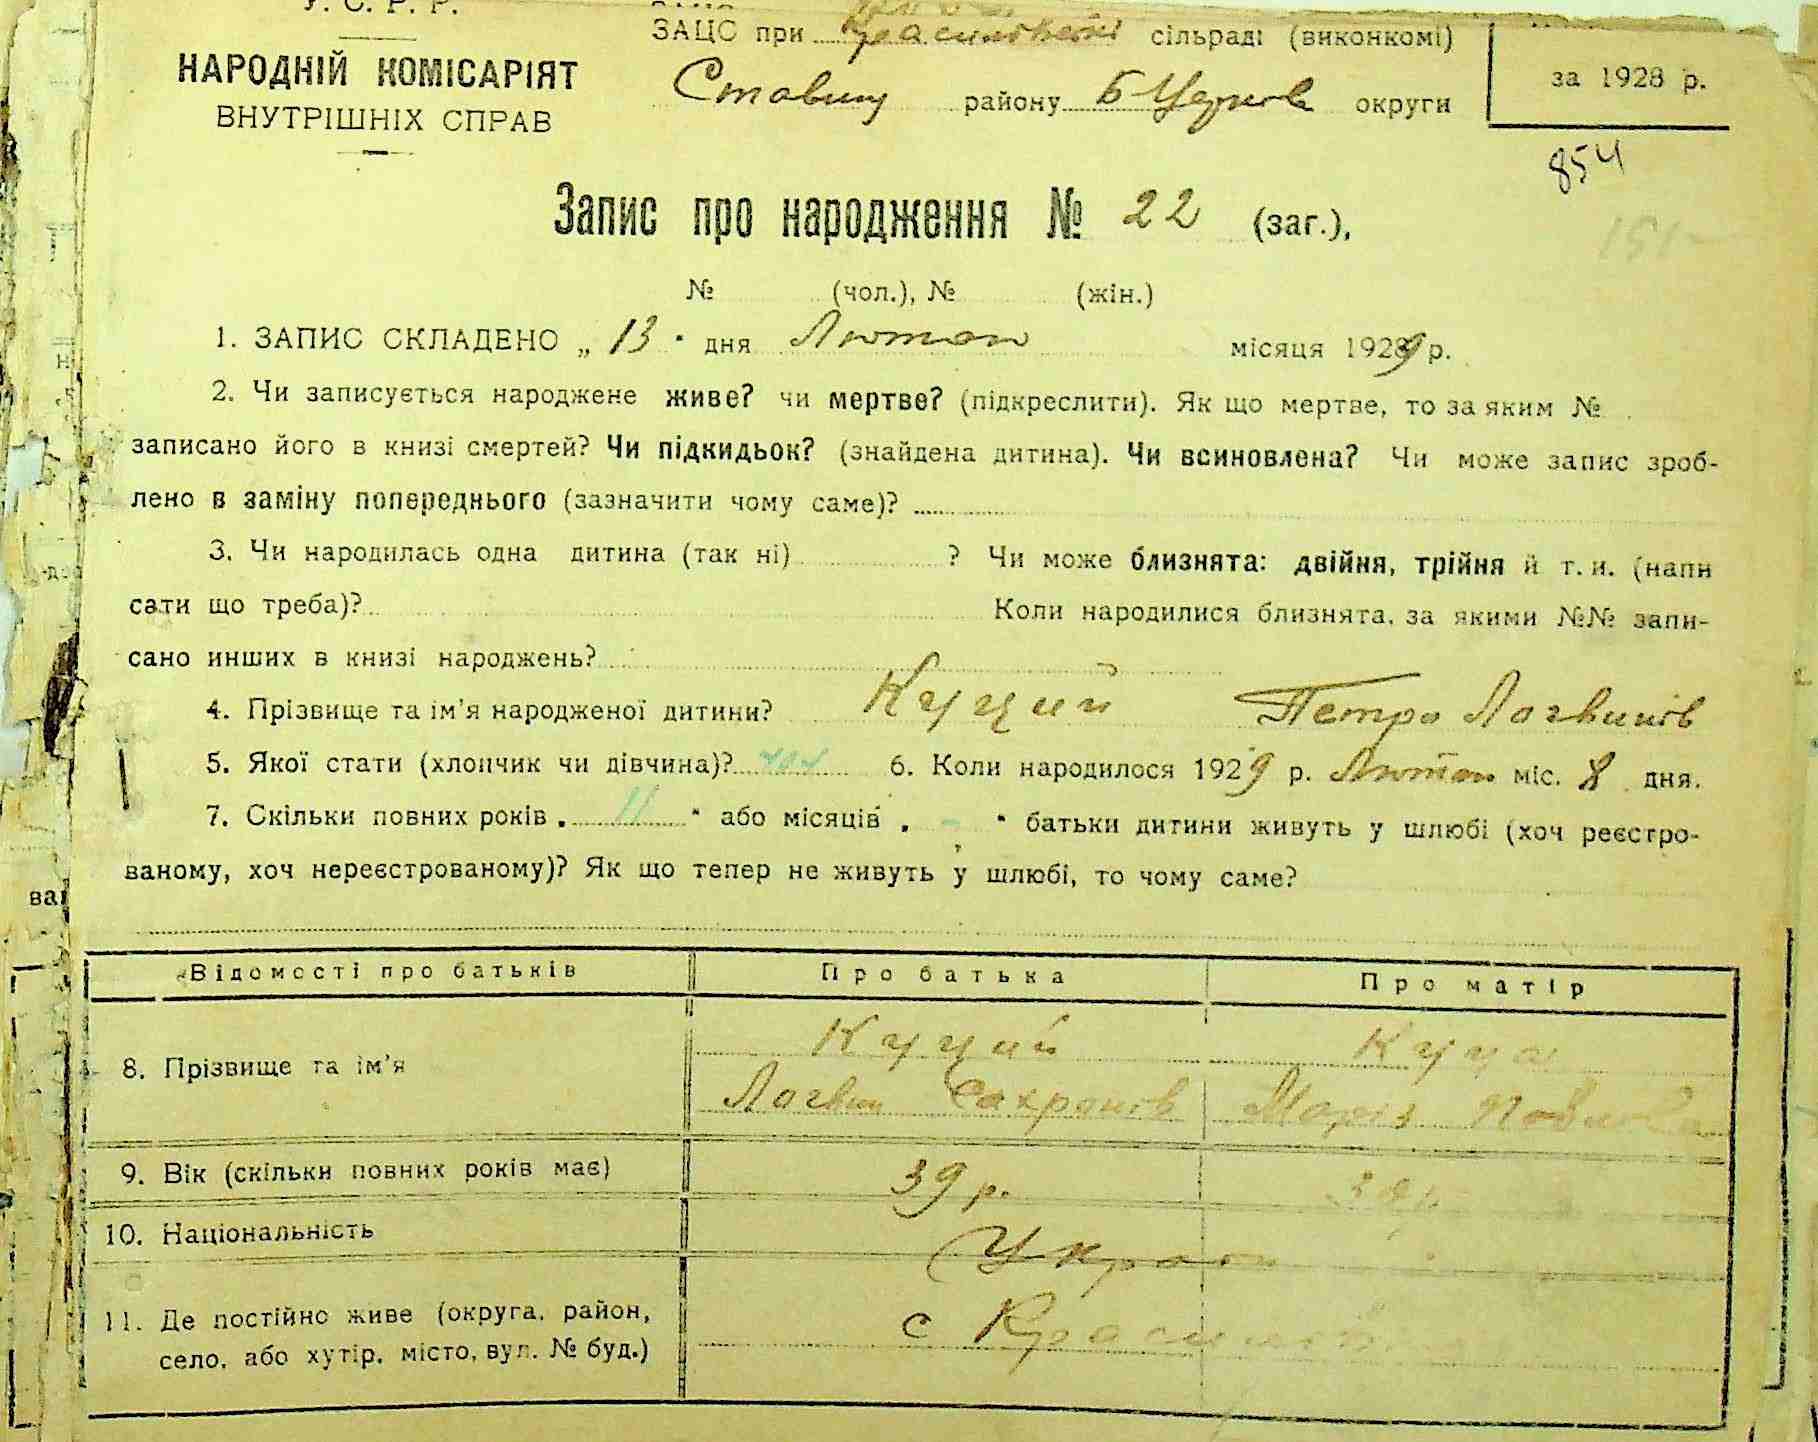 У. С. Р. Р.
НАРОДНІЙ КОМІСАРІЯТ
ВНУТРІШНІХ СПРАВ
ЗАЦС при Красилівській сільраді (виконкомі)
Ставищ району Б Церков округи
за 1928 р.
854
151
Запис про народження № 22 (заг.),
№ (чол.), № (жін.)
1. ЗАПИС СКЛАДЕНО „ 13 " дня Лютого місяця 1929 р.
2. Чи записується народжене живе? чи мертве? (підкреслити). Як що мертве, то за яким №
записано його в книзі смертей? Чи підкидьок? (знайдена дитина). Чи всиновлена? Чи може запис зроб-
лено в заміну попереднього (зазначити чому саме)?
3. Чи народилась одна дитина (так ні) ? Чи може близнята: двійня, трійня й т. и. (напи
сати що треба)? Коли народилися близнята, за якими №№ запи-
сано инших в книзі народжень?
4. Прізвище та ім'я народженої дитини? Куций Петро Логвинів
5. Якої стати (хлопчик чи дівчина)? чол 6. Коли народилося 1929 р. Лютого міс. 8 дня.
7. Скільки повних років „ 11 " або місяців „ - " батьки дитини живуть у шлюбі (хоч реєстро-
ваному, хоч нереєстрованому)? Як що тепер не живуть у шлюбі, то чому саме?
Відомості про батьків Про батька Про матір
8. Прізвище та ім'я Куций Куца
Логвин Сахронів Марія
9. Вік (скільки повних років має) 39 р.
10. Національність Укра
11. Де постійно живе (округа, район,
село, або хутір, місто, вул. № буд.) с Красилівка